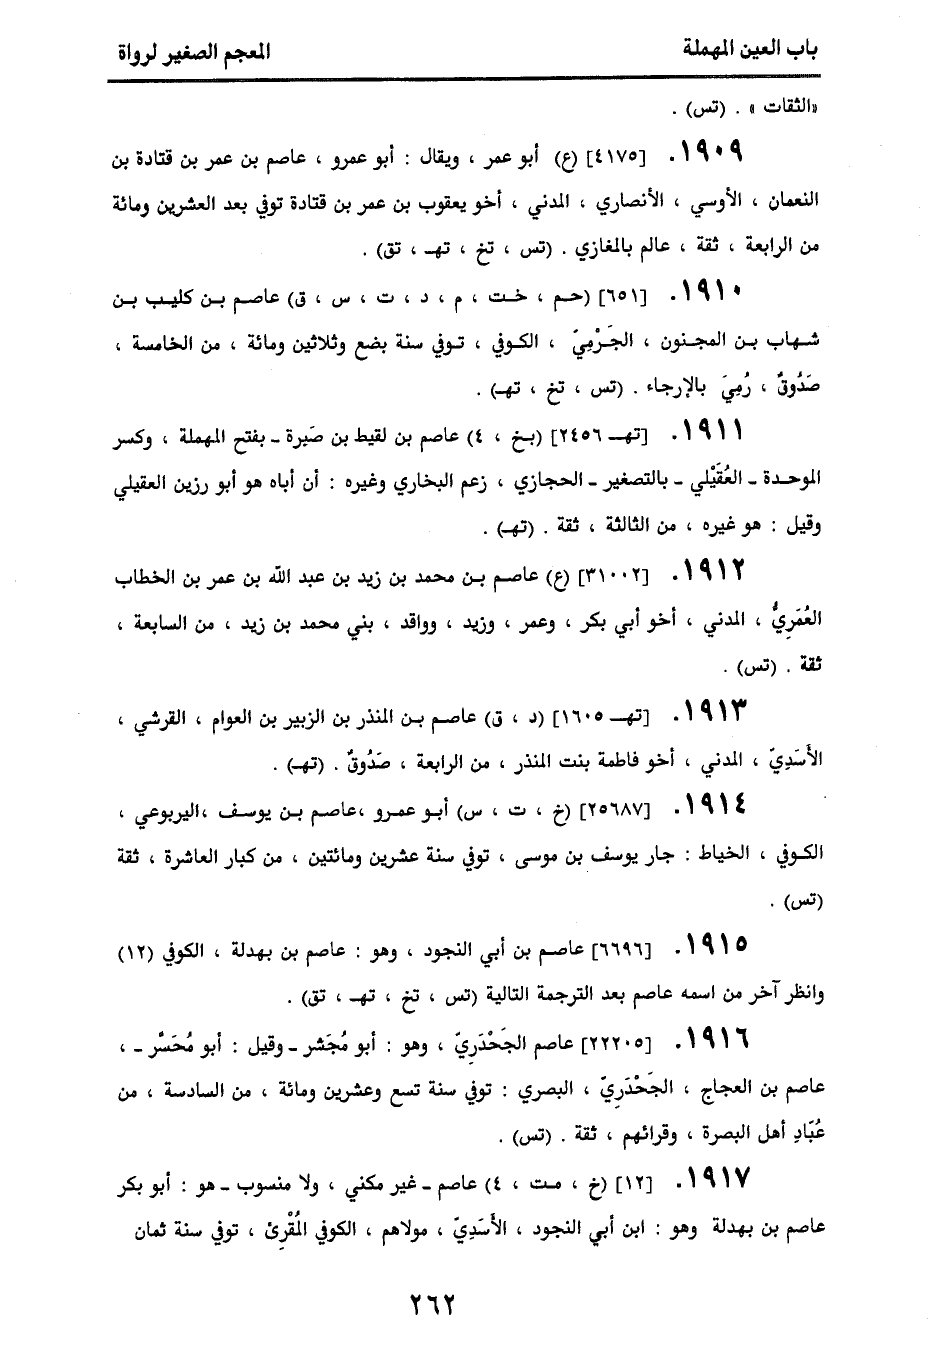 باب العين المهملة
المعجم الصغير لرواة
«الثقات» . (تس) .
١٩٠٩. [٤١٧٥] (ع) أبو عمر ، ويقال : أبو عمرو ، عاصم بن عمر بن قتادة بن
النعمان ، الأوسي ، الأنصاري ، المدني ، أخو يعقوب بن عمر بن قتادة توفي بعد العشرين ومائة
من الرابعة ، ثقة ، عالم بالمغازي . (تس ، تخ ، تهـ ، تق) .
١٩١٠. [٦٥١] (حـم ، خـت ، م ، د ، ت ، س ، ق) عاصم بـن كليـب بـن
شـهاب بـن المجـنون ، الجَـرْمِيّ ، الكـوفي ، تـوفي سـنة بضع وثلاثين ومائة ، من الخامسة ،
صَدُوقٌ ، رُمِيَ بالإرجاء . (تس ، تخ ، تهـ) .
١٩١١. [تهـ ٢٤٥٦] (بـخ ، ٤) عاصم بن لقيط بن صَبِرة ـ بفتح المهملة ، وكسر
الموحـدة ـ العُقَيْلي ـ بالتصغير ـ الحجازي ، زعم البخاري وغيره : أن أباه هو أبو رزين العقيلي
وقيل : هو غيره ، من الثالثة ، ثقة . (تهـ) .
١٩١٢. [٣١٠٠٢] (ع) عاصـم بـن محمد بن زيد بن عبد الله بن عمر بن الخطاب
العُمَرِيُّ ، المدني ، أخو أبي بكر ، وعمر ، وزيد ، وواقد ، بني محمد بن زيد ، من السابعة ،
ثقة . (تس) .
١٩١٣. [تهـ ١٦٠٥] (د ، ق) عاصـم بـن المنذر بن الزبير بن العوام ، القرشي ،
الأَسَدِيّ ، المدني ، أخو فاطمة بنت المنذر ، من الرابعة ، صَدُوقٌ . (تهـ) .
١٩١٤. [٢٥٦٨٧] (خ ، ت ، س) أبـو عمـرو ،عاصـم بـن يوسـف ،اليربوعي ،
الكـوفي ، الخياط : جار يوسف بن موسى ، توفي سنة عشرين ومائتين ، من كبار العاشرة ، ثقة
(تس) .
١٩١٥. [٦٦٩٦] عاصـم بن أبي النجود ، وهو : عاصم بن بهدلة ، الكوفي (١٢)
وانظر آخر من اسمه عاصم بعد الترجمة التالية (تس ، تخ ، تهـ ، تق) .
١٩١٦. [٢٢٢٠٥] عاصم الجَحْدَرِيّ ، وهو : أبو مُجَشر ـ وقيل : أبو مُحَسَّر ـ ،
عاصم بن العجاج ، الجَحْدَرِيّ ، البصري : توفي سنة تسع وعشرين ومائة ، من السادسة ، من
عُبّادِ أهل البصرة ، وقرائهم ، ثقة . (تس) .
١٩١٧. [١٢] (خ ، مـت ، ٤) عاصم ـ غير مكني ، ولا منسوب ـ هو : أبو بكر
عاصم بن بهدلة وهو : ابن أبي النجود ، الأَسَدِيّ ، مولاهم ، الكوفي المُقْرِئ ، توفي سنة ثمان
٢٦٢